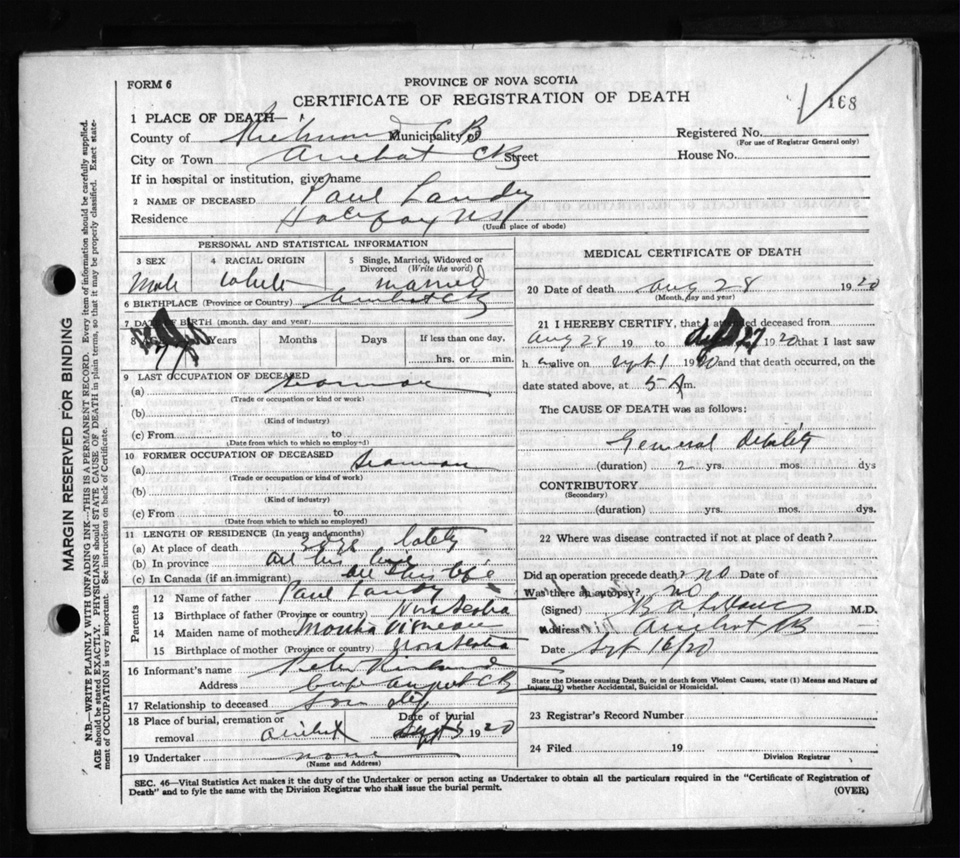 FORM 6
PROVINCE OF NOVA SCOTIA
CERTIFICATE OF REGISTRATION OF DEATH
168
1 PLACE OF DEATH—
County of Richmond Municipality of CB
Registered No.
(For use of Registrar General only)
City or Town Arichat CB Street
House No.
If in hospital or institution, give name
2 NAME OF DECEASED Paul Landry
Residence Halifax NS
(Usual place of abode)
PERSONAL AND STATISTICAL INFORMATION
3 SEX Male
4 RACIAL ORIGIN White
5 Single, Married, Widowed or Divorced (Write the word) married
6 BIRTHPLACE (Province or Country) Arichat CB
7 DATE OF BIRTH (month, day and year)
8 Years Months Days If less than one day, hrs. or min.
9 LAST OCCUPATION OF DECEASED
(a) Seaman
(Trade or occupation or kind of work)
(b)
(Kind of industry)
(c) From to
(Date from which to which so employed)
10 FORMER OCCUPATION OF DECEASED
(a) Seaman
(Trade or occupation or kind of work)
(b)
(Kind of industry)
(c) From to
(Date from which to which so employed)
11 LENGTH OF RESIDENCE (In years and months)
(a) At place of death
(b) In province all his life
(c) In Canada (if an immigrant) all his life
Parents
12 Name of father Paul Landry
13 Birthplace of father (Province or Country) Nova Scotia
14 Maiden name of mother
15 Birthplace of mother (Province or Country) Nova Scotia
16 Informant's name Peter
Address Cape Auguet CB
17 Relationship to deceased
18 Place of burial, cremation or removal Arichat
Date of burial Sept 1920
19 Undertaker none
(Name and Address)
MEDICAL CERTIFICATE OF DEATH
20 Date of death Aug 28 1920
(Month, day and year)
21 I HEREBY CERTIFY, that I attended deceased from
Aug 28 19 to 1920 that I last saw
h alive on Sept 1 1920 and that death occurred, on the
date stated above, at 5 A m.
The CAUSE OF DEATH was as follows:
General debility
(duration) 2 yrs. mos. dys
CONTRIBUTORY
(Secondary)
(duration) yrs. mos. dys.
22 Where was disease contracted if not at place of death?
Did an operation precede death? no Date of
Was there an autopsy? no
(Signed) M.D.
Address Arichat CB
Date Sept 16/20
State the Disease causing Death, or in death from Violent Causes, state (1) Means and Nature of
Injury, (2) whether Accidental, Suicidal or Homicidal.
23 Registrar's Record Number
24 Filed 19
Division Registrar
SEC. 46—Vital Statistics Act makes it the duty of the Undertaker or person acting as Undertaker to obtain all the particulars required in the "Certificate of Registration of
Death" and to fyle the same with the Division Registrar who shall issue the burial permit.
(OVER)
MARGIN RESERVED FOR BINDING
N.B.—WRITE PLAINLY WITH UNFADING INK—THIS IS A PERMANENT RECORD. Every item of information should be carefully supplied.
AGE should be stated EXACTLY. PHYSICIANS should STATE CAUSE OF DEATH in plain terms, so that it may be properly classified. Exact state-
ment of OCCUPATION is very important. See instructions on back of Certificate.